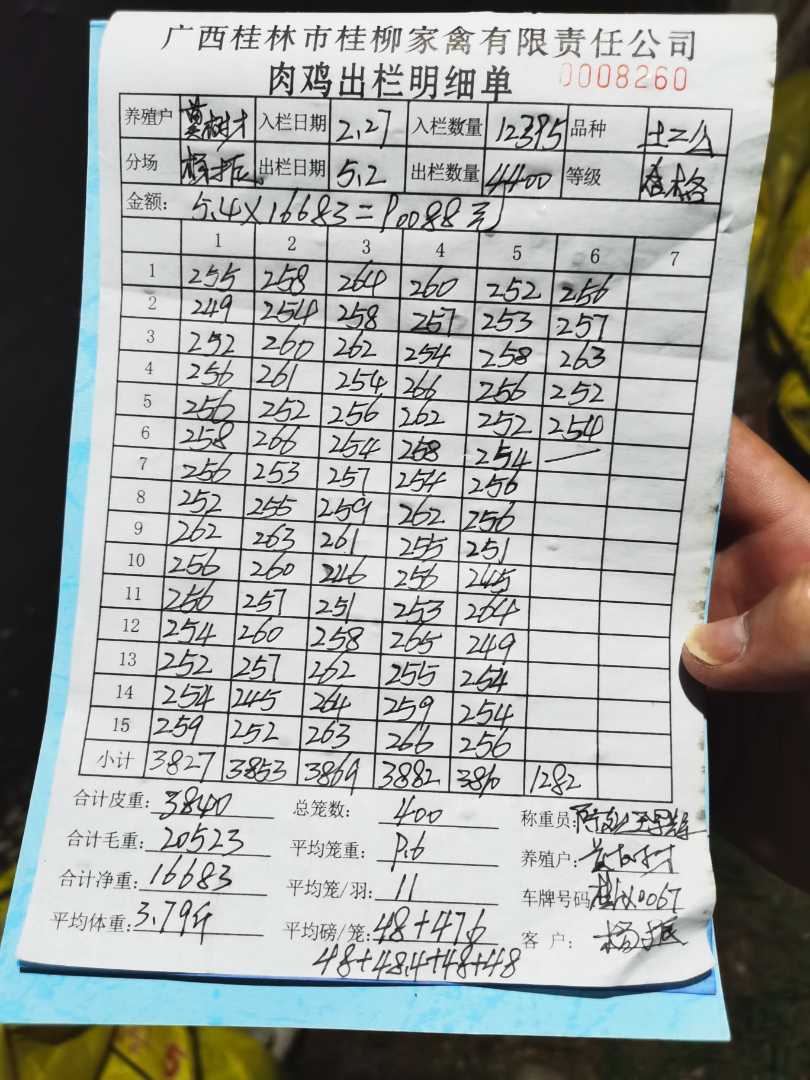 广西桂林市桂柳家禽有限责任公司
肉鸡出栏明细单 0008260
养殖户 莫树才 入栏日期 2.27 入栏数量 12395 品种 土二公
分场 杨振 出栏日期 5.2 出栏数量 4400 等级 合格
金额: 5.4×16683=90088元
1 2 3 4 5 6 7
1 255 258 264 260 252 256
2 249 254 258 257 253 257
3 252 260 262 254 258 263
4 256 261 254 266 256 252
5 256 252 256 262 252 254
6 258 266 254 258 254 —
7 256 253 257 254 256
8 252 255 259 262 256
9 262 263 261 255 251
10 256 260 246 256 245
11 256 257 251 253 264
12 254 260 258 265 249
13 252 257 262 255 254
14 254 245 264 259 254
15 259 252 263 266 256
小计 3827 3853 3869 3882 3810 1282
合计皮重: 3840 总笼数: 400 称重员:
合计毛重: 20523 平均笼重: 9.6 养殖户: 莫树才
合计净重: 16683 平均笼/羽: 11 车牌号码
平均体重: 3.79斤 平均磅/笼: 48+47.6 客 户: 杨振
48+48.4+48+48